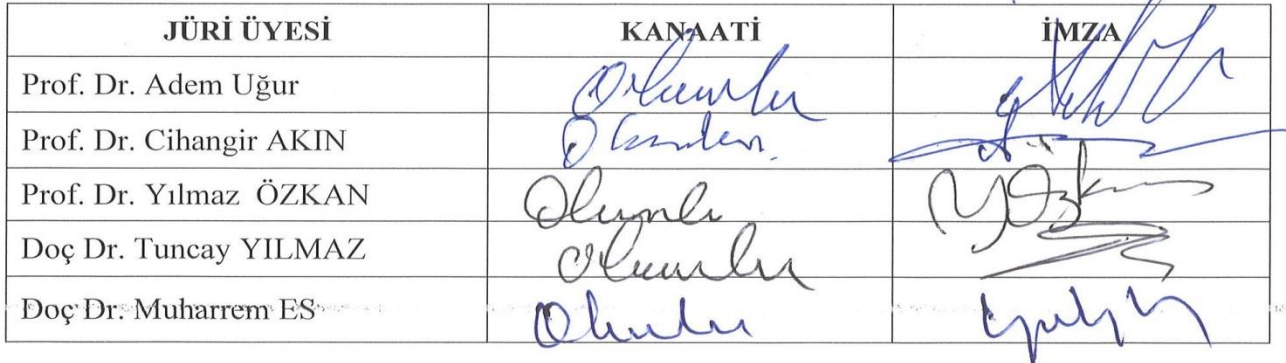 JÜRİ ÜYESİ KANAATİ İMZA
Prof. Dr. Adem Uğur Olumlu
Prof. Dr. Cihangir AKIN Olumlu
Prof. Dr. Yılmaz ÖZKAN Olumlu
Doç Dr. Tuncay YILMAZ Olumlu
Doç Dr. Muharrem ES Olumlu